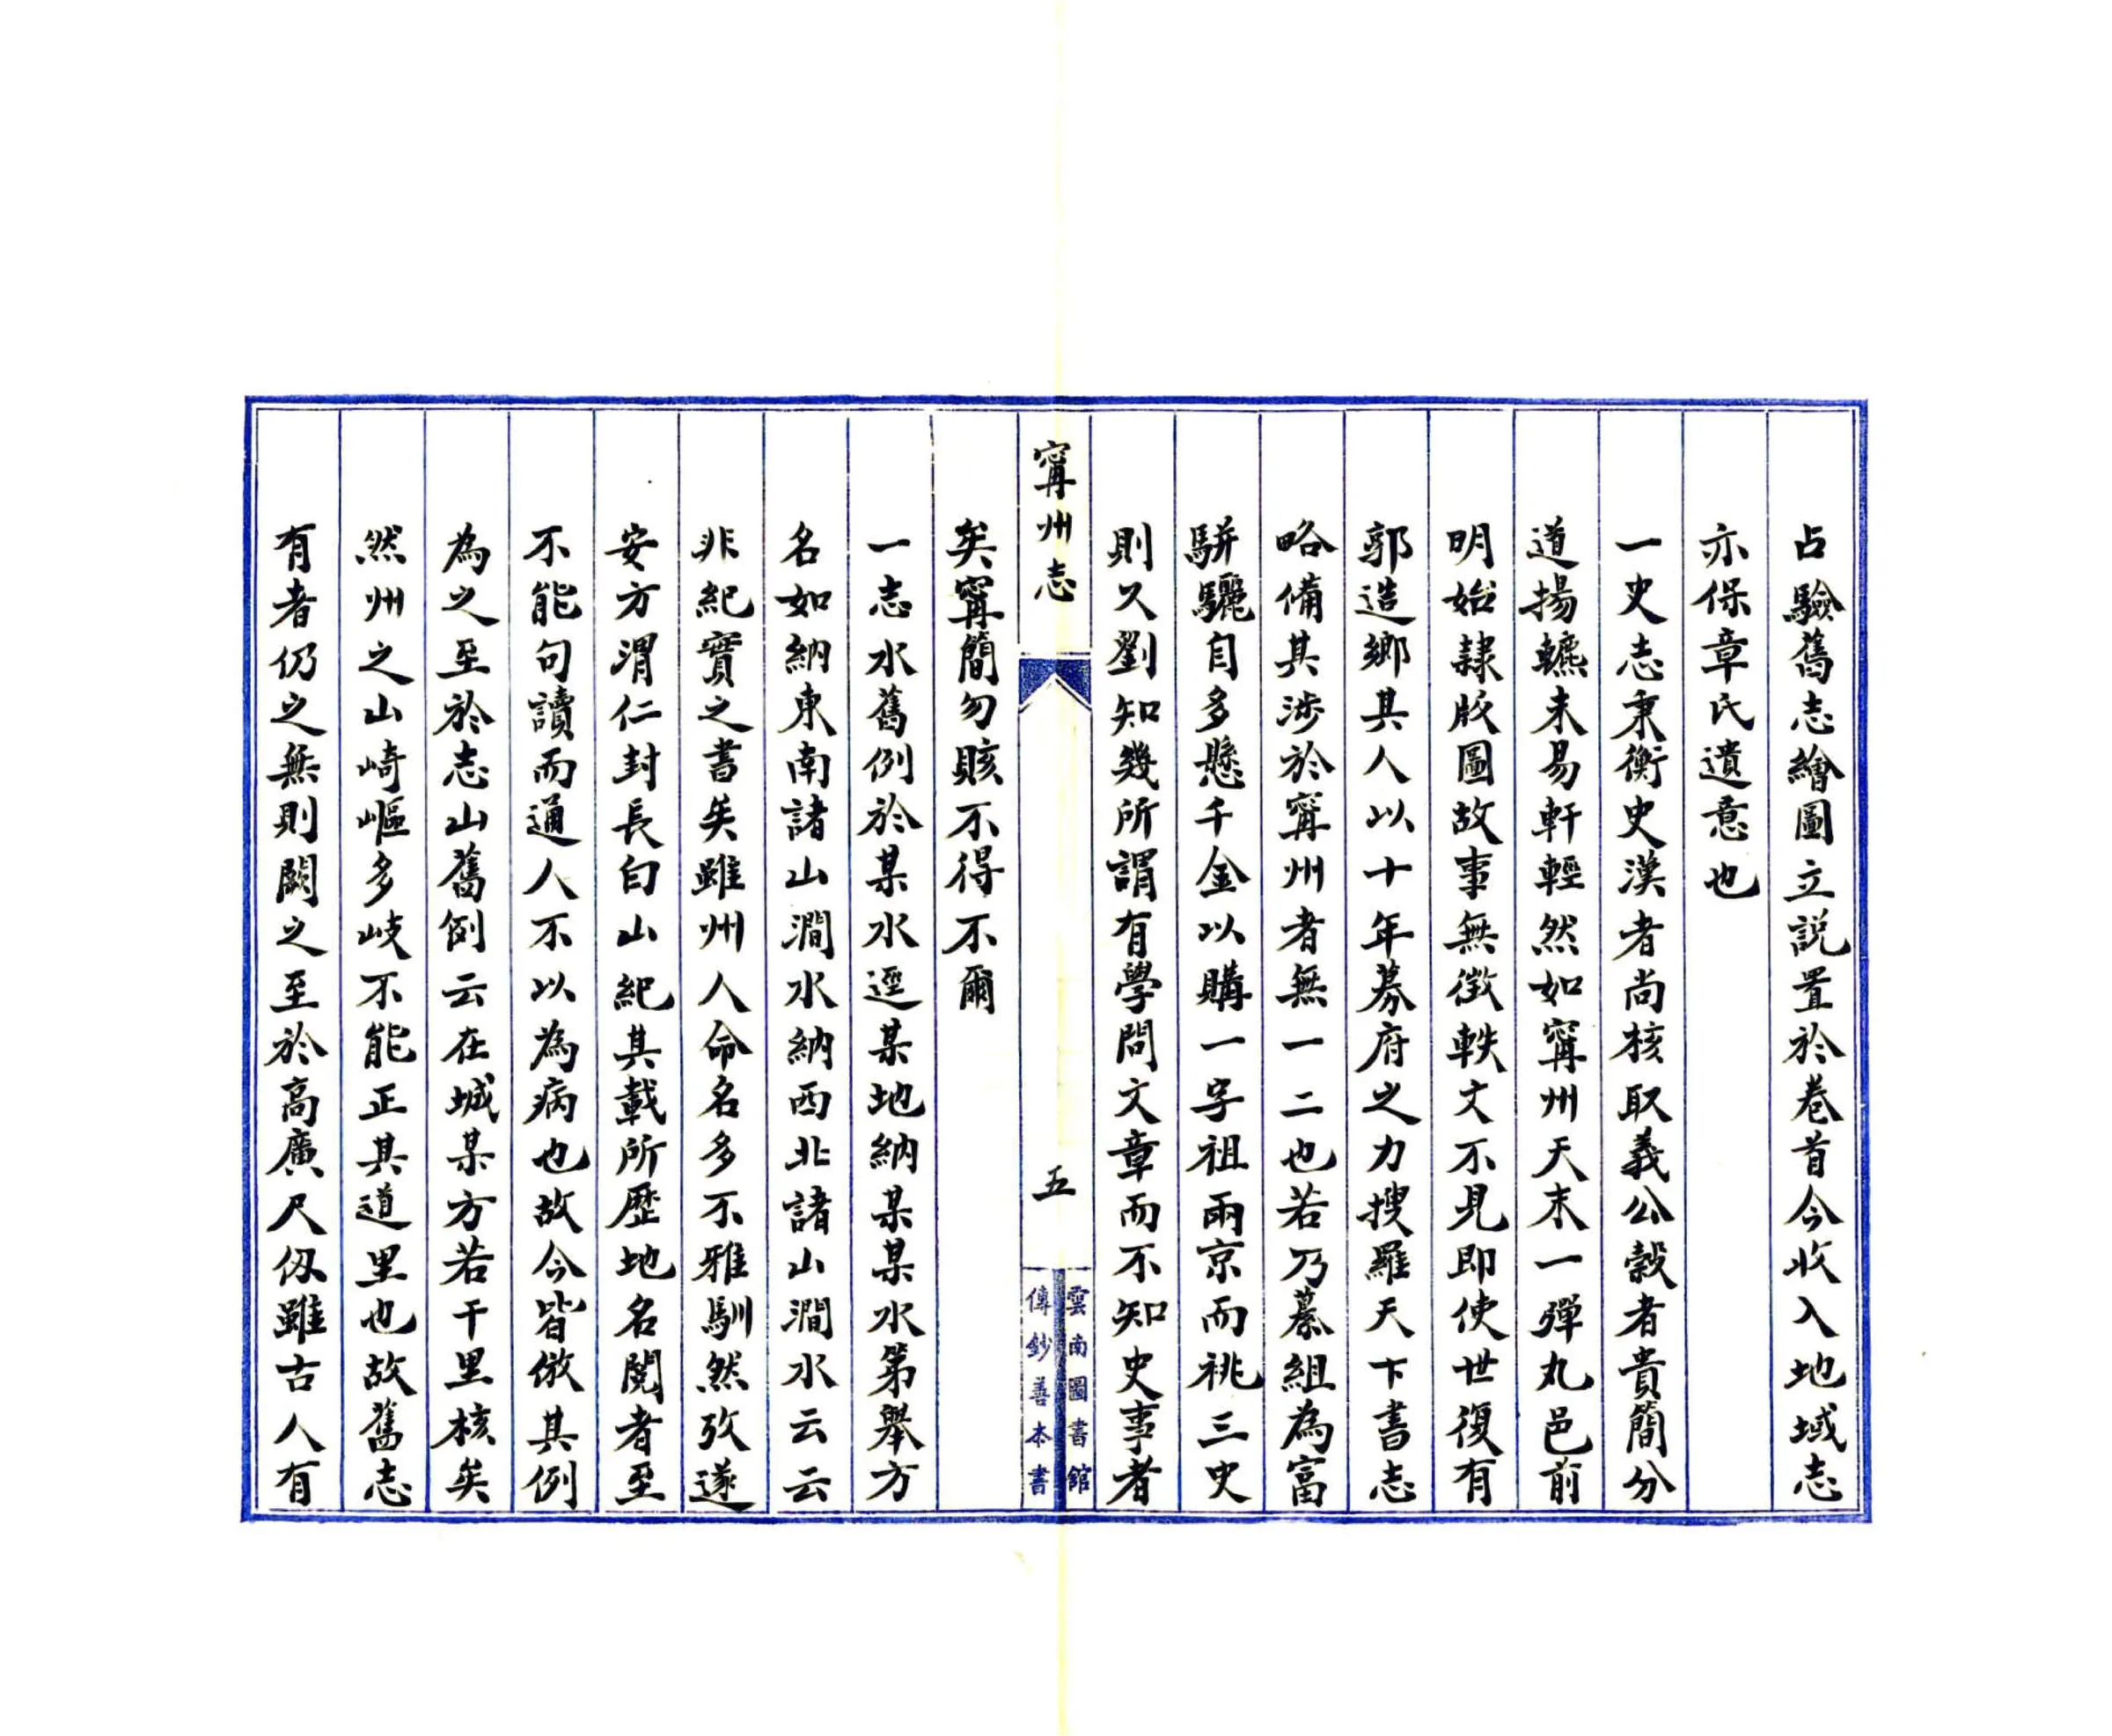 占驗舊志繪圖立説置於卷首今收入地域志
亦保章氏遺意也
一史志秉衡史漢者尚核取義公穀者貴簡分
道揚鑣未易軒輕然如寗州天末一彈丸邑前
明始隷版圖故事無徴軼文不見即使世復有
郭造鄉其人以十年募府之力搜羅天下書志
略備其涉於寗州者無一二也若乃纂組為富
駢驪自多懸千金以購一字祖兩京而祧三史
則久劉知幾所謂有學問文章而不知史事者
寗州志
五
雲南圖書館
傳鈔善本書
矣寗簡勿賅不得不爾
一志水舊例於某水逕某地納某某水第舉方
名如納東南諸山澗水納西北諸山澗水云云
非紀實之書矣雖州人命名多不雅馴然攷遂
安方渭仁封長白山紀其載所歷地名閲者至
不能句讀而通人不以為病也故今皆倣其例
為之至於志山舊例云在城某方若干里核矣
然州之山崎嶇多岐不能正其道里也故舊志
有者仍之無則闕之至於高廣尺仭雖古人有